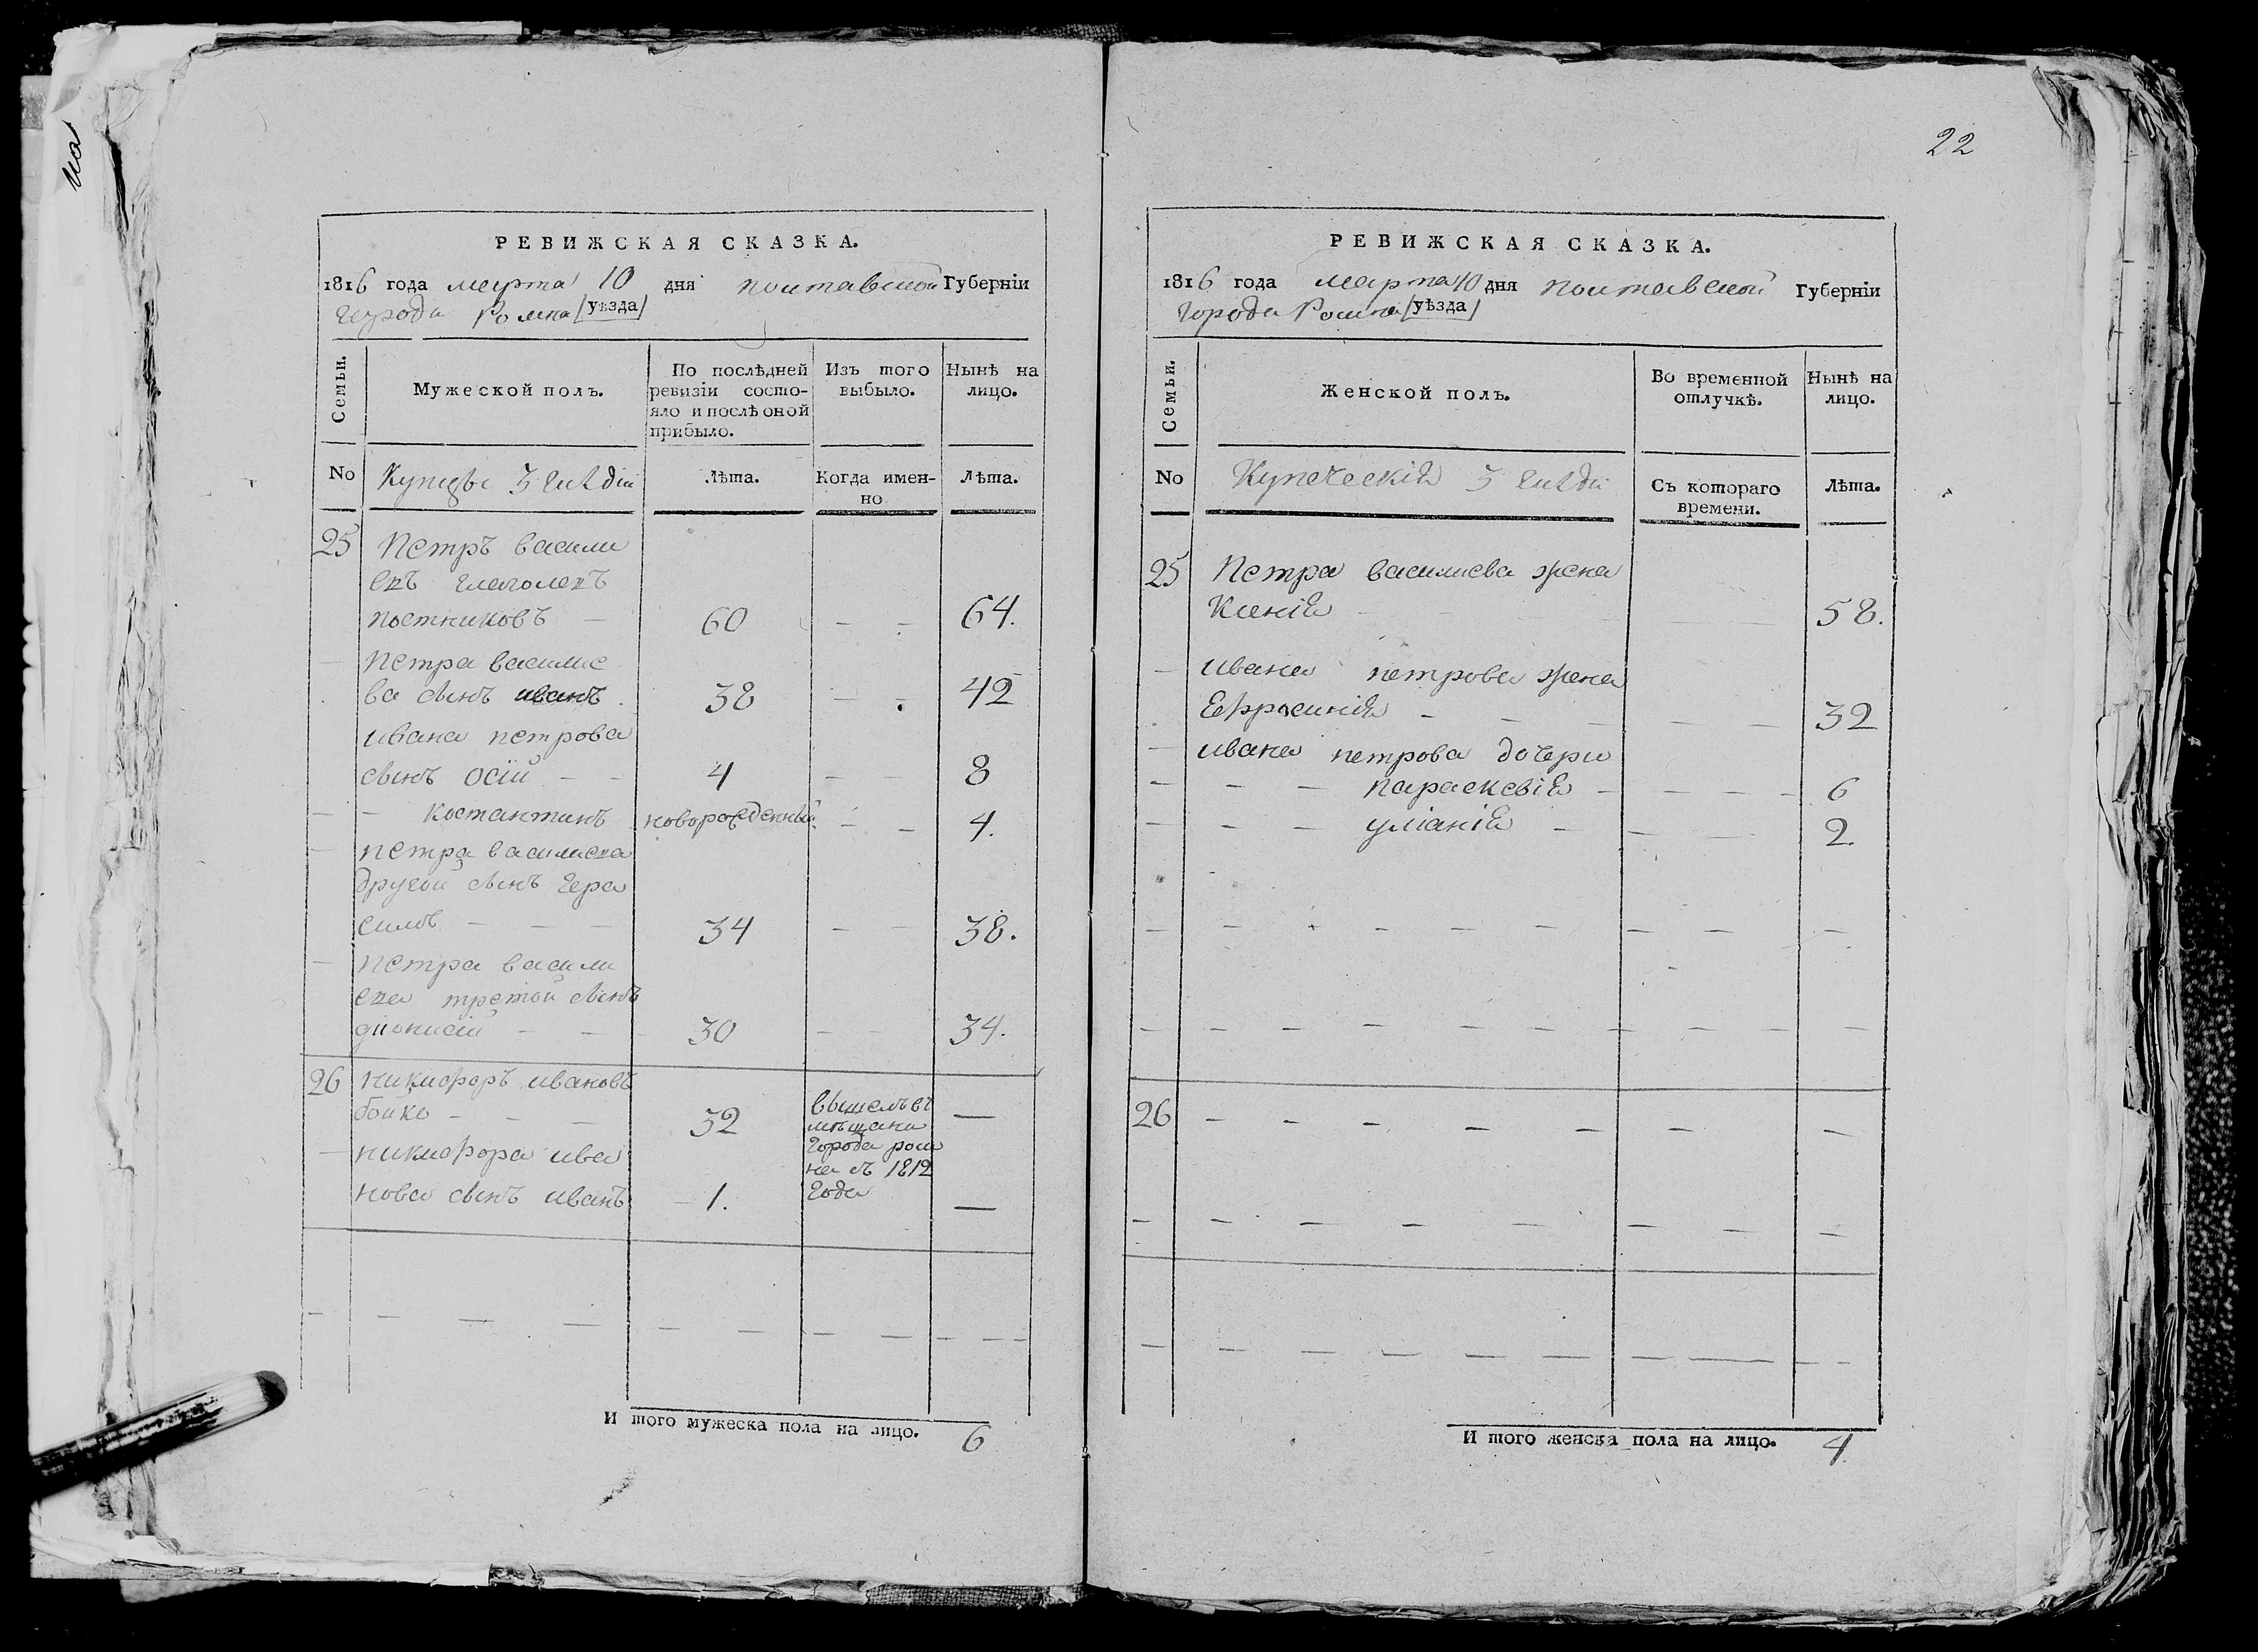 на
РЕВИЖСКАЯ СКАЗКА.
1816 года марта 10 дня полтавской Губерніи
города Ромна [уѣзда]
Семьи.
Мужеской полъ.
По послѣдней
ревизіи состо-
яло и послѣ оной
прибыло.
Изъ того
выбыло.
Нынѣ на
лицо.
No
Купцы 3 гилдіи
Лѣта.
Когда имен-
но
Лѣта.
25 Петръ васили
евъ
постниковъ — 60 — — 64.
— петра василие
ва сынъ иванъ 38 — — 42
ивана петрова
сынъ осій — — 4 — — 8
— — костантинъ новорожденный — — 4.
— петра василиева
другой сынъ гера
симъ — — — 34 — — 38.
— петра васили
ева третой сынъ
діонисій — — 30 — — 34.
26 никифоръ ивановъ
бойко — — — 32 —
— никифора ива
нова сынъ иванъ — 1. —
вышелъ въ
мѣщани
города ром
на въ 1812
года
И того мужеска пола на лицо. 6
22
РЕВИЖСКАЯ СКАЗКА.
1816 года марта 10 дня полтавской Губерніи
города Ромна [уѣзда]
Семьи.
Женской полъ.
Во временной
отлучкѣ.
Нынѣ на
лицо.
No
Купеческія 3 гилдіи
Съ котораго
времени.
Лѣта.
25 Петра василиева жена
Ксенія — — — 58.
— ивана петрова жена
Ефросинія — — — — — 32
— ивана петрова дочери
— — — параскевія — — — — 6
— — — уліанія — — — 2.
26 — — — — — — — —
И того женска пола на лицо. 4